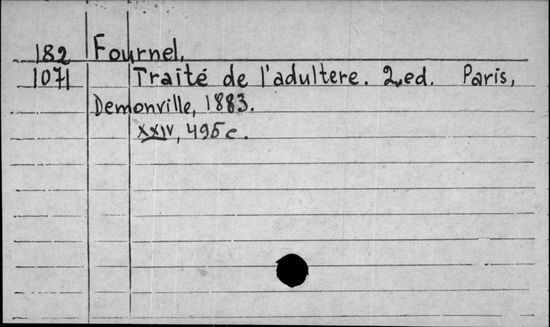 182 Fournel,
1071 Traité de l'adultere. 2.ed. Paris,
Demonville, 1883.
XXIV, 495 c.